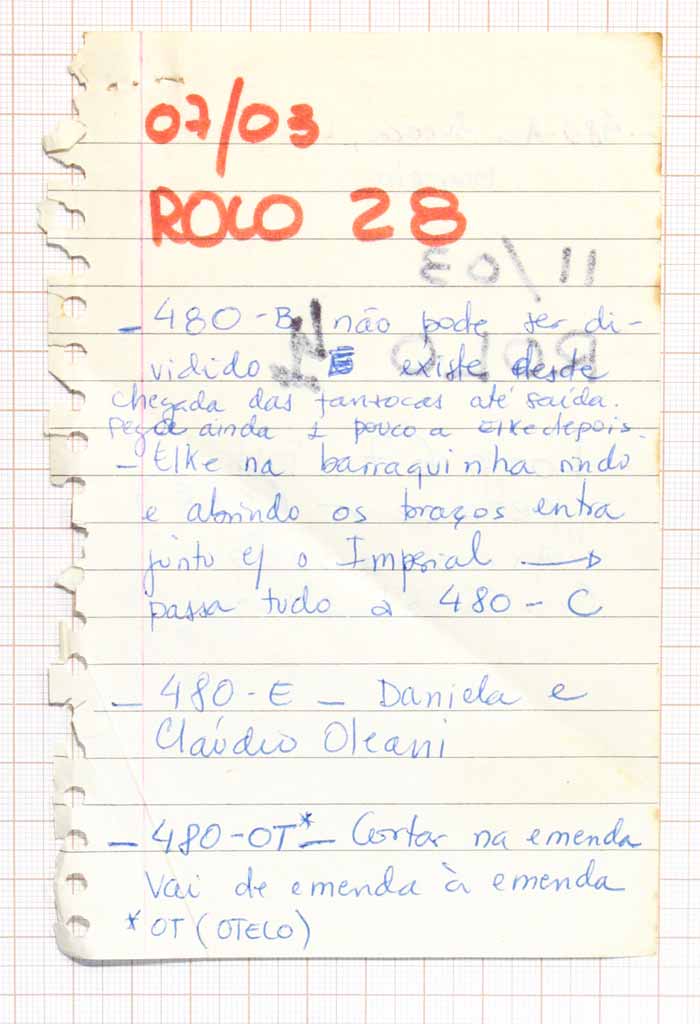 07/03
ROLO 28
- 480 - B não pode ser di-
vidido E existe desde
chegada das
até saída.
Pega ainda 1 pouco a Elke depois.
- Elke na barraquinha rindo
e abrindo os braços entra
junto c/ o Imperial →
passa tudo a 480 - C
- 480 - E - Daniela e
Claúdio Oleani
- 480-OT* - Cortar na emenda
Vai de emenda à emenda
* OT (OTELO)
11/03
ROLO